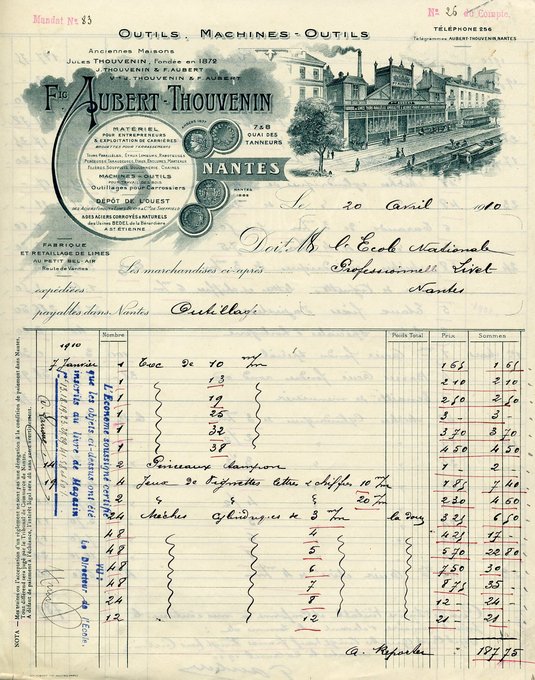 Mandat No. 83
No. 26 du Compte.
OUTILS, MACHINES-OUTILS
TÉLÉPHONE 256
Télégrammes: AUBERT-THOUVENIN, NANTES
Anciennes Maisons
JULES THOUVENIN, fondée en 1872
J. THOUVENIN & F. AUBERT
Vve J. THOUVENIN & F. AUBERT
Fic AUBERT-THOUVENIN
MATÉRIEL
POUR ENTREPRENEURS
& EXPLOITATION DE CARRIÈRES
MACHINES-OUTILS
Outillages pour Carrossiers
DÉPÔT DE L'OUEST
ACIERS CORROYÉS & NATURELS
des Usines BEDEL de la Bérardière
A ST ÉTIENNE
7 & 8
QUAI DES
TANNEURS
NANTES
Le 20 avril 1910
FABRIQUE
ET RETAILLAGE DE LIMES
AU PETIT BEL-AIR
Route de Vannes
Doit M. l'Ecole Nationale
Les marchandises ci-après Professionnelle Livet
expédiées Nantes
payables dans Nantes Outillage
Nombre Poids Total Prix Sommes
1910
7 Janvier 1 Toc de 10 m/m 1 65 1 65
1 13 2 10 2 10
1 19 2 60 2 60
1 25 3 - 3 -
1 32 3 70 3 70
1 38 4 50 4 50
14 2 Pinceaux tampon 1 - 2 -
19 4 Jeux de Vignettes lettres & chiffres 10 m/m 1 85 7 40
2 " " 20 m/m 2 30 4 60
24 Mèches Cylindriques de 3 m/m la douz 3 25 6 50
48 4 4 25 17 -
48 5 5 70 22 80
48 6 7 50 30 -
48 7 8 75 35 -
24 8 12 - 24 -
12 12 21 - 21 -
A Reporter 187 75
L'Econome soussigné certifie
que les objets ci-dessus ont été
inscrits au livre de Magasin
VU:
Le Directeur de l'Ecole.